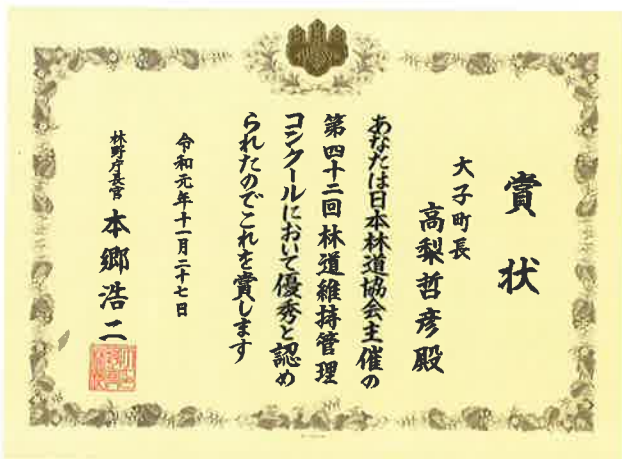 賞状
大子町長
高梨哲彦殿
あなたは日本林道協会主催の
第四十二回林道維持管理
コンクールにおいて優秀と認め
られたのでこれを賞します
令和元年十一月二十七日
林野庁長官 本郷浩二